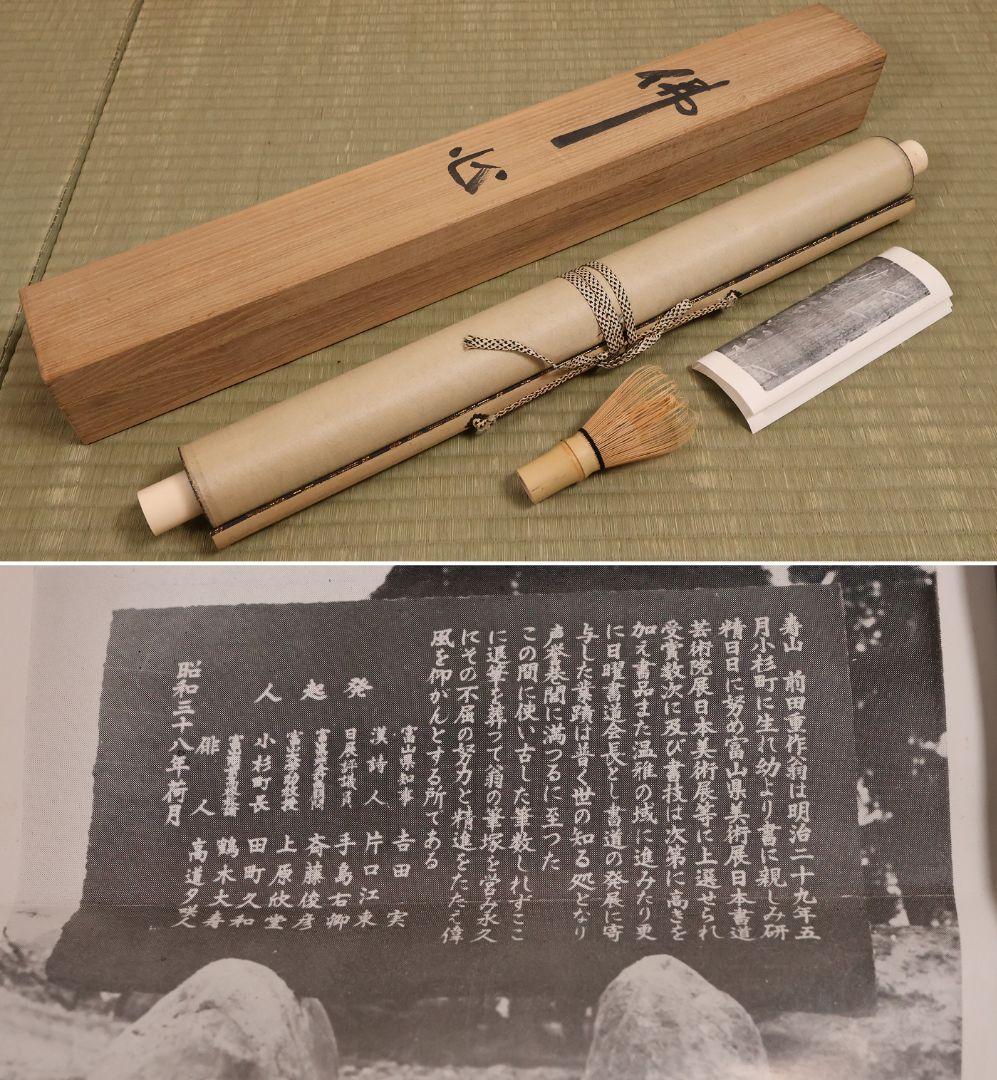 佛心
寿山 前田重作翁は明治二十九年五
月小杉町に生れ幼より書に親しみ研
精日日に努め富山県美術展日本書道
芸術院展日本美術展等に上選せられ
受賞数次に及び書技は次第に高きを
加え書品また温雅の域に進みたり更
に日曜書道会長とし書道の発展に寄
与した筆蹟は普く世の知る処となり
声誉巷間に満つるに至つた
この間に使い古した筆数しれずここ
に退筆を葬つて翁の筆塚を営み永久
にその不屈の努力と精進をたたえ偉
風を仰がんとする所である
発起人
富山県知事 吉田 実
漢詩人 片口江東
日展評議員 手島右卿
斉藤俊彦
上原欣堂
小杉町長 田町久和
鶴木大寿
俳人 高道夕咲人
昭和三十八年荷月